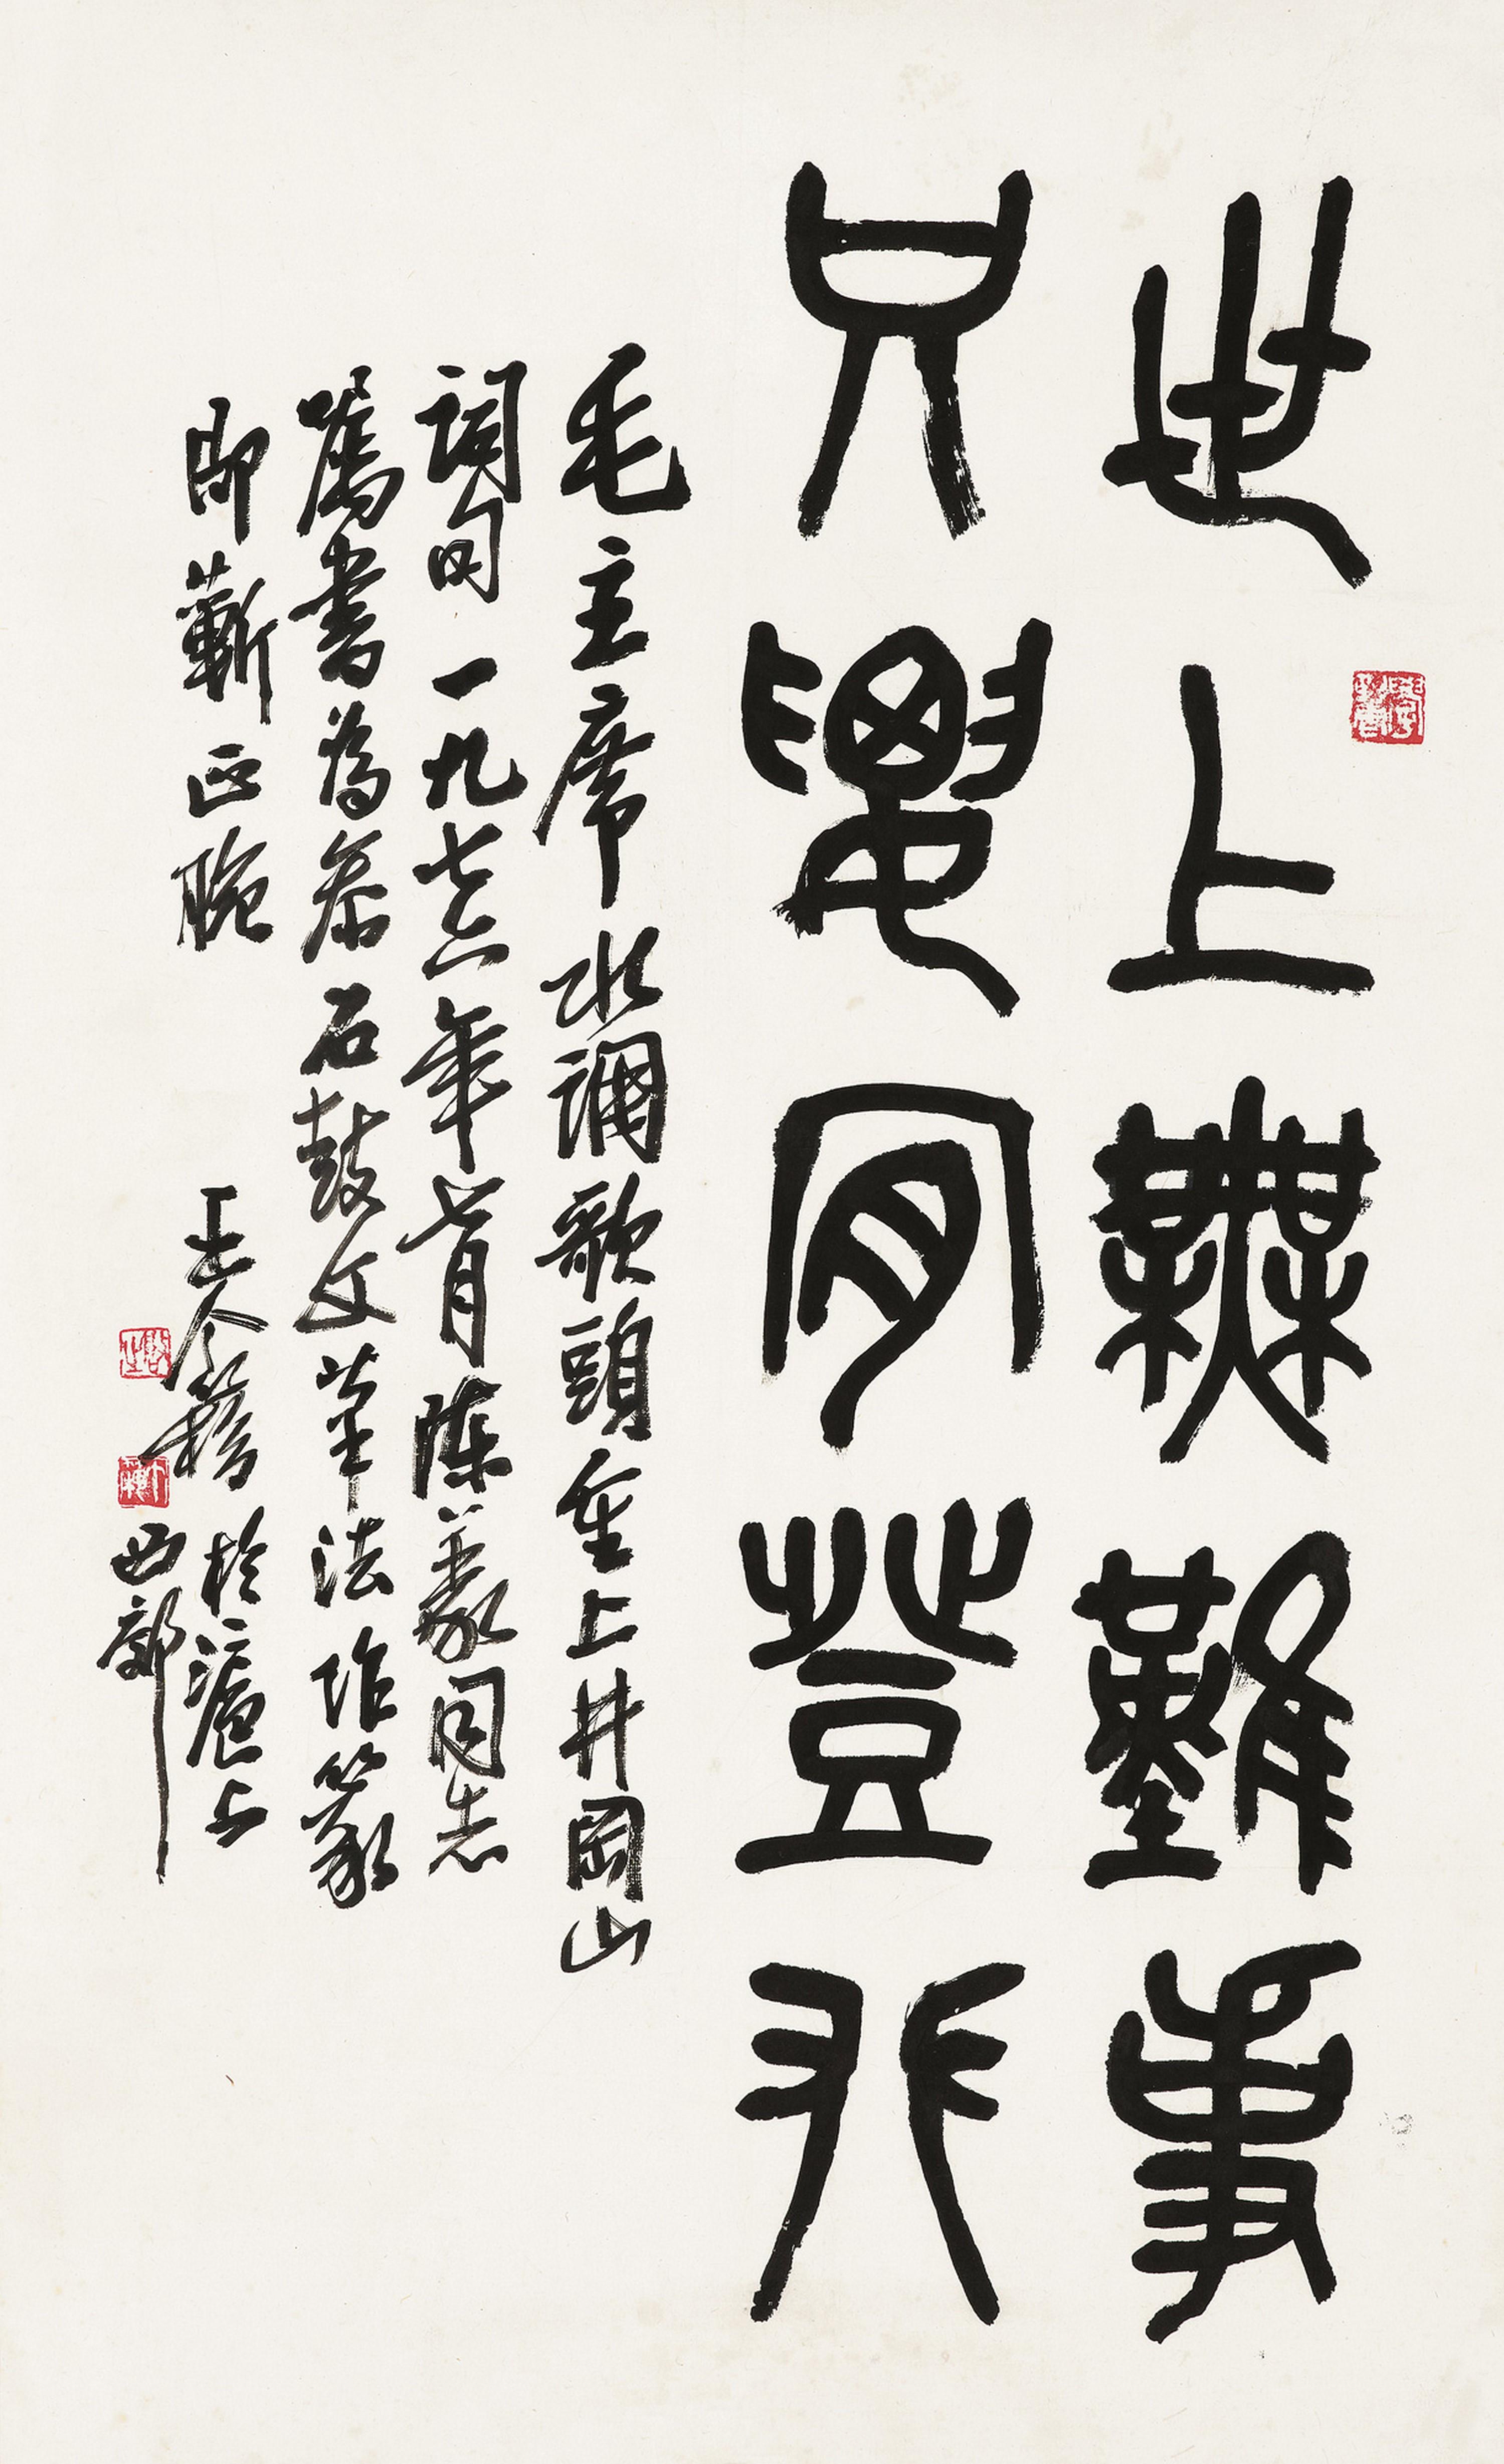 世上無難事
只要肯登攀
毛主席水調歌頭重上井岡山
詞句一九七六年七月陳同志
屬書為參石鼓文筆法作篆
即蘄正腕 王个簃於滬上
西郊